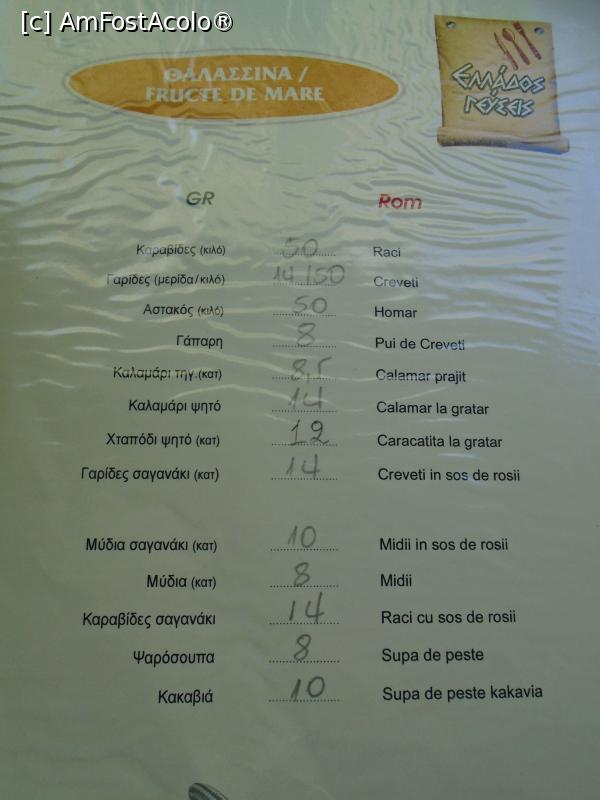 [c] AmFostAcolo®
ΘΑΛΑΣΣΙΝΑ /
FRUCTE DE MARE
Ελλάδος
γεύσεις
GR Rom
Καραβίδες (κιλό) 50 Raci
Γαρίδες (μερίδα/κιλό) 14/50 Creveti
Αστακός (κιλό) 50 Homar
Γάπαρη 8 Pui de Creveti
Καλαμάρι τηγ.(κατ) 8,5 Calamar prajit
Καλαμάρι ψητό 14 Calamar la gratar
Χταπόδι ψητό (κατ) 12 Caracatita la gratar
Γαρίδες σαγανάκι (κατ) 14 Creveti in sos de rosii
Μύδια σαγανάκι (κατ) 10 Midii in sos de rosii
Μύδια (κατ) 8 Midii
Καραβίδες σαγανάκι 14 Raci cu sos de rosii
Ψαρόσουπα 8 Supa de peste
Κακαβιά 10 Supa de peste kakavia